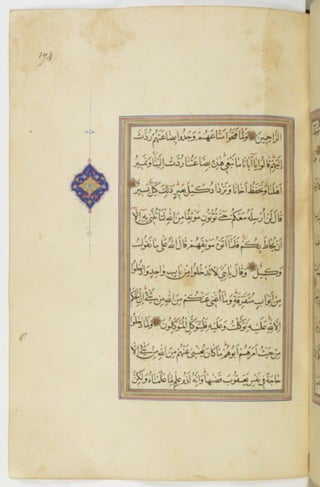 الراحمين ولما فتحوا متاعهم وجدوا بضاعتهم ردت
اليهم قالوا يا ابانا ما نبغي هذه بضاعتنا ردت الينا ونمير
اهلنا ونحفظ اخانا ونزداد كيل بعير ذلك كيل يسير
قال لن ارسله معكم حتى تؤتون موثقا من الله لتأتنني به الا
ان يحاط بكم فلما اتوه موثقهم قال الله على ما نقول
وكيل وقال يا بني لا تدخلوا من باب واحد وادخلوا
من ابواب متفرقة وما اغني عنكم من الله من شيء ان الحكم
الا لله عليه توكلت وعليه فليتوكل المتوكلون ولما دخلوا
من حيث امرهم ابوهم ما كان يغني عنهم من الله من شيء الا
حاجة في نفس يعقوب قضاها وانه لذو علم لما علمناه ولكن